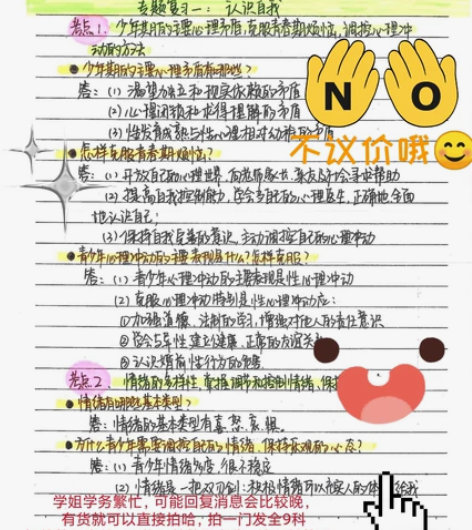 专题复习一：认识自我
考点1. 少年期的主要心理矛盾,克服青春期烦恼,调控心理冲
动的方法
少年期的主要心理矛盾有哪些？
答：(1) 渴望独立和现实依赖的矛盾
(2) 心理闭锁和求得理解的矛盾
(3) 性发育成熟与性心理相对幼稚的矛盾
NO
不议价哦
怎样克服青春期烦恼？
答：(1) 开放自己的心理世界,向老师家长、亲友及时会寻求帮助
(2) 提高自我控制能力,学会当自己的心理医生,正确地全面
地认识自己；
(3) 保持自我完善的意识,主动调控自己的心理冲动
青少年心理冲动的主要表现是什么？怎样克服？
答：(1) 青少年心理冲动的主要表现是性心理冲动
(2) 克服心理冲动特别是性心理冲动应：
①加强道德、法制的学习,增强对他人的责任意识
②学会与异性建立健康、正常的友谊关
③认识婚前性行为的危害
考点2. 情绪的多样性,掌握调节和控制情绪,保持
情绪有哪些基本类型？
答：情绪的基本类型有喜、怒、哀、惧。
为什么青少年需要调控自己的情绪,保持乐观的心态？
答：(1) 青少年情绪多变、很不稳定
(2) 情绪是一把双刃剑：积极情绪可以充实人的体
学姐学务繁忙，可能回复消息会比较晚，
有货就可以直接拍哈，拍一门发全9科